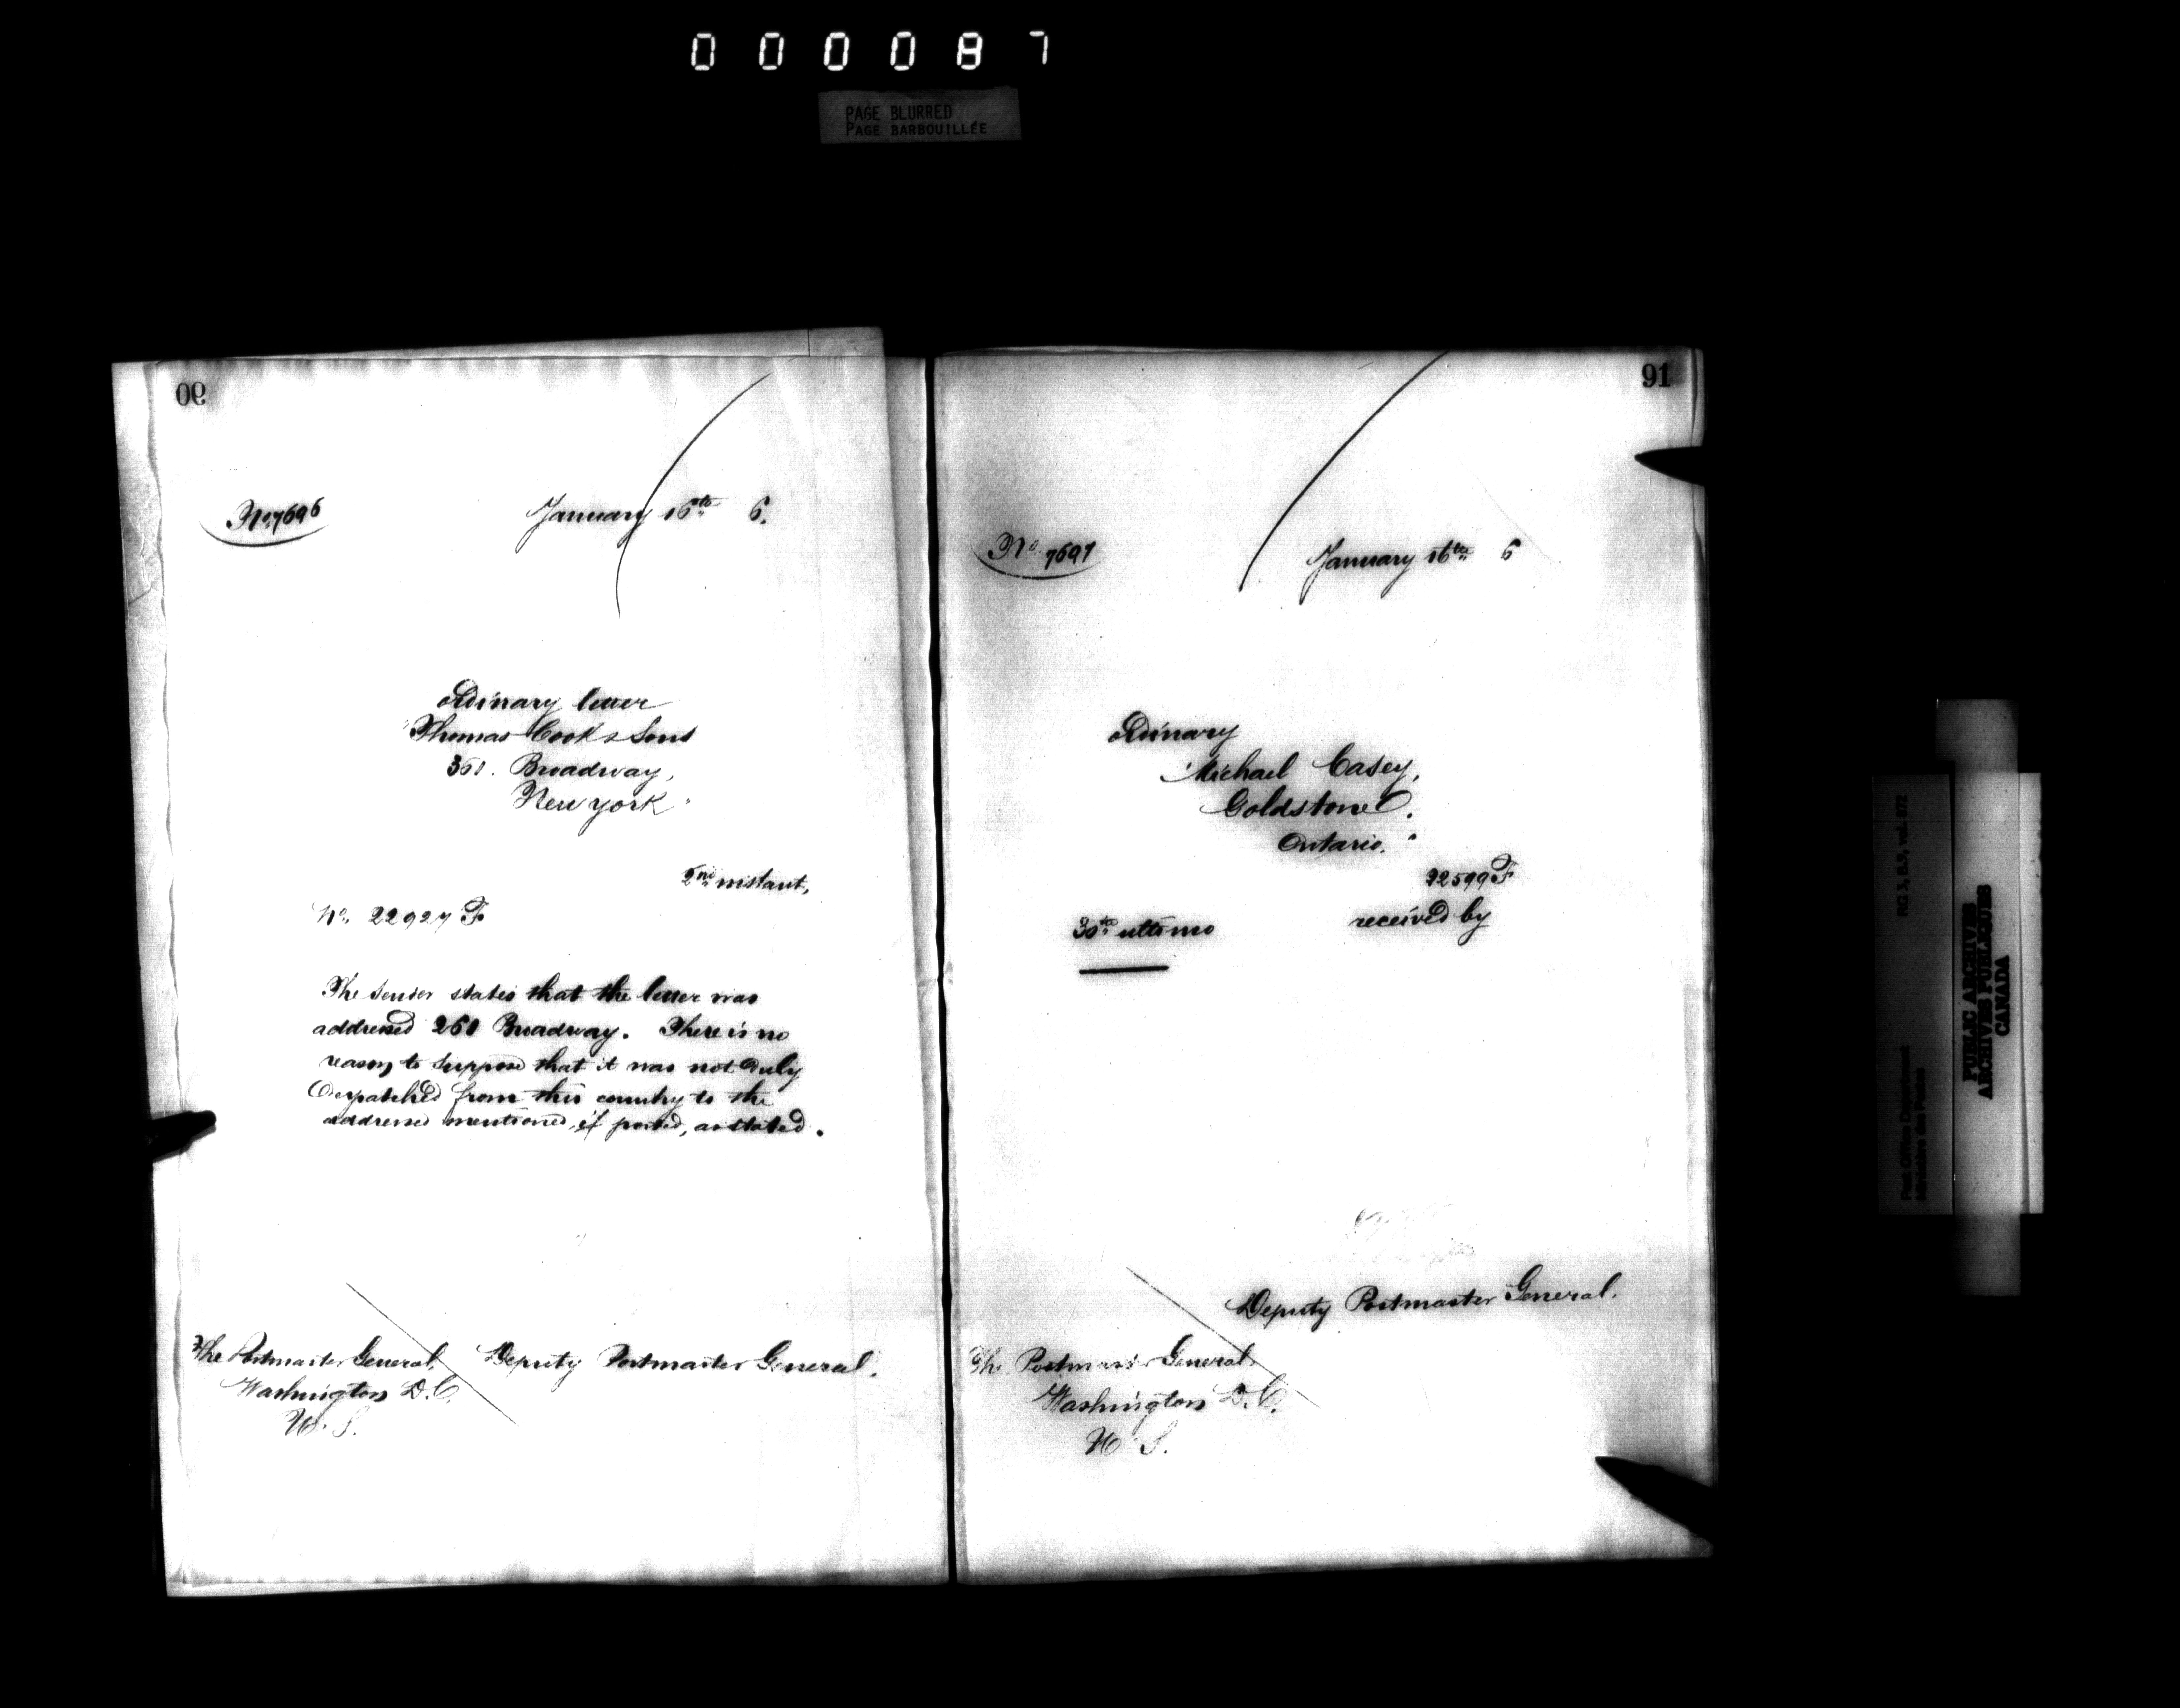 000087
PAGE BLURRED
PAGE BARBOUILLÉE
90
No. 7696
January 16th 6.
Ordinary letter
"Thomas Cook & Sons
361. Broadway,
New York"
2nd instant,
No. 22927 F
The sender states that the letter was
addressed 261 Broadway. There is no
reason to suppose that it was not duly
despatched from this country to the
address mentioned, if posted, as stated.
The Postmaster General, Deputy Postmaster General.
Washington D.C.
U.S.
91
No. 7697
January 16th 6
Ordinary
"Michael Casey,
Goldstone.
Ontario."
22599 F
30th ultimo received by
Deputy Postmaster General.
The Postmaster General,
Washington D.C.
U.S.
RG 3, B.9, vol. 872
Post Office Department
Ministère des Postes
PUBLIC ARCHIVES
ARCHIVES PUBLIQUES
CANADA